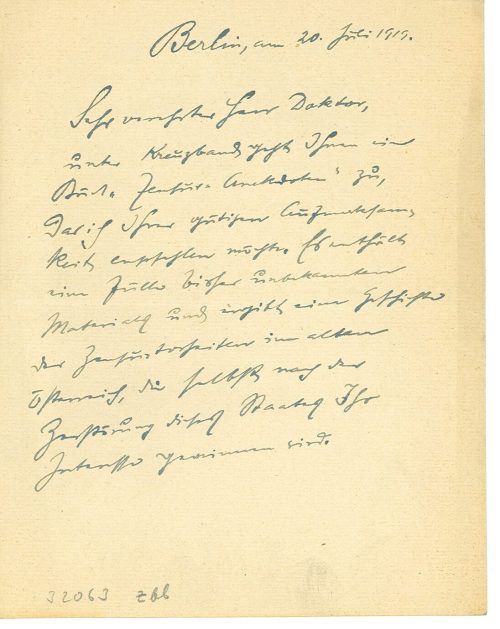 Berlin, am 20. Juli 1919.
Sehr verehrter Herr Doktor,
unter Kreuzband geht Ihnen ein
Buch „Zensur-Anekdoten“ zu,
das ich Ihrer gütigen Aufmerksam-
keit empfehlen möchte. Es enthält
eine Fülle bisher unbekannten
Materials und ergibt eine Geschichte
der Zensurtorheiten im alten
Österreich, die selbst nach der
Zerstörung dieses Staates Ihr
Interesse gewinnen wird.
32063 zbb